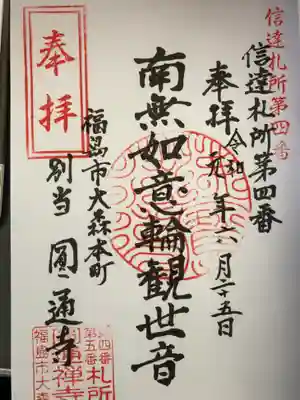 信達札所第四番
信達札所第四番
奉拝 令和元年六月二十五日
南無如意輪観世音
奉拝
福島市大森本町
別当 圓通寺
札所
福島市大森